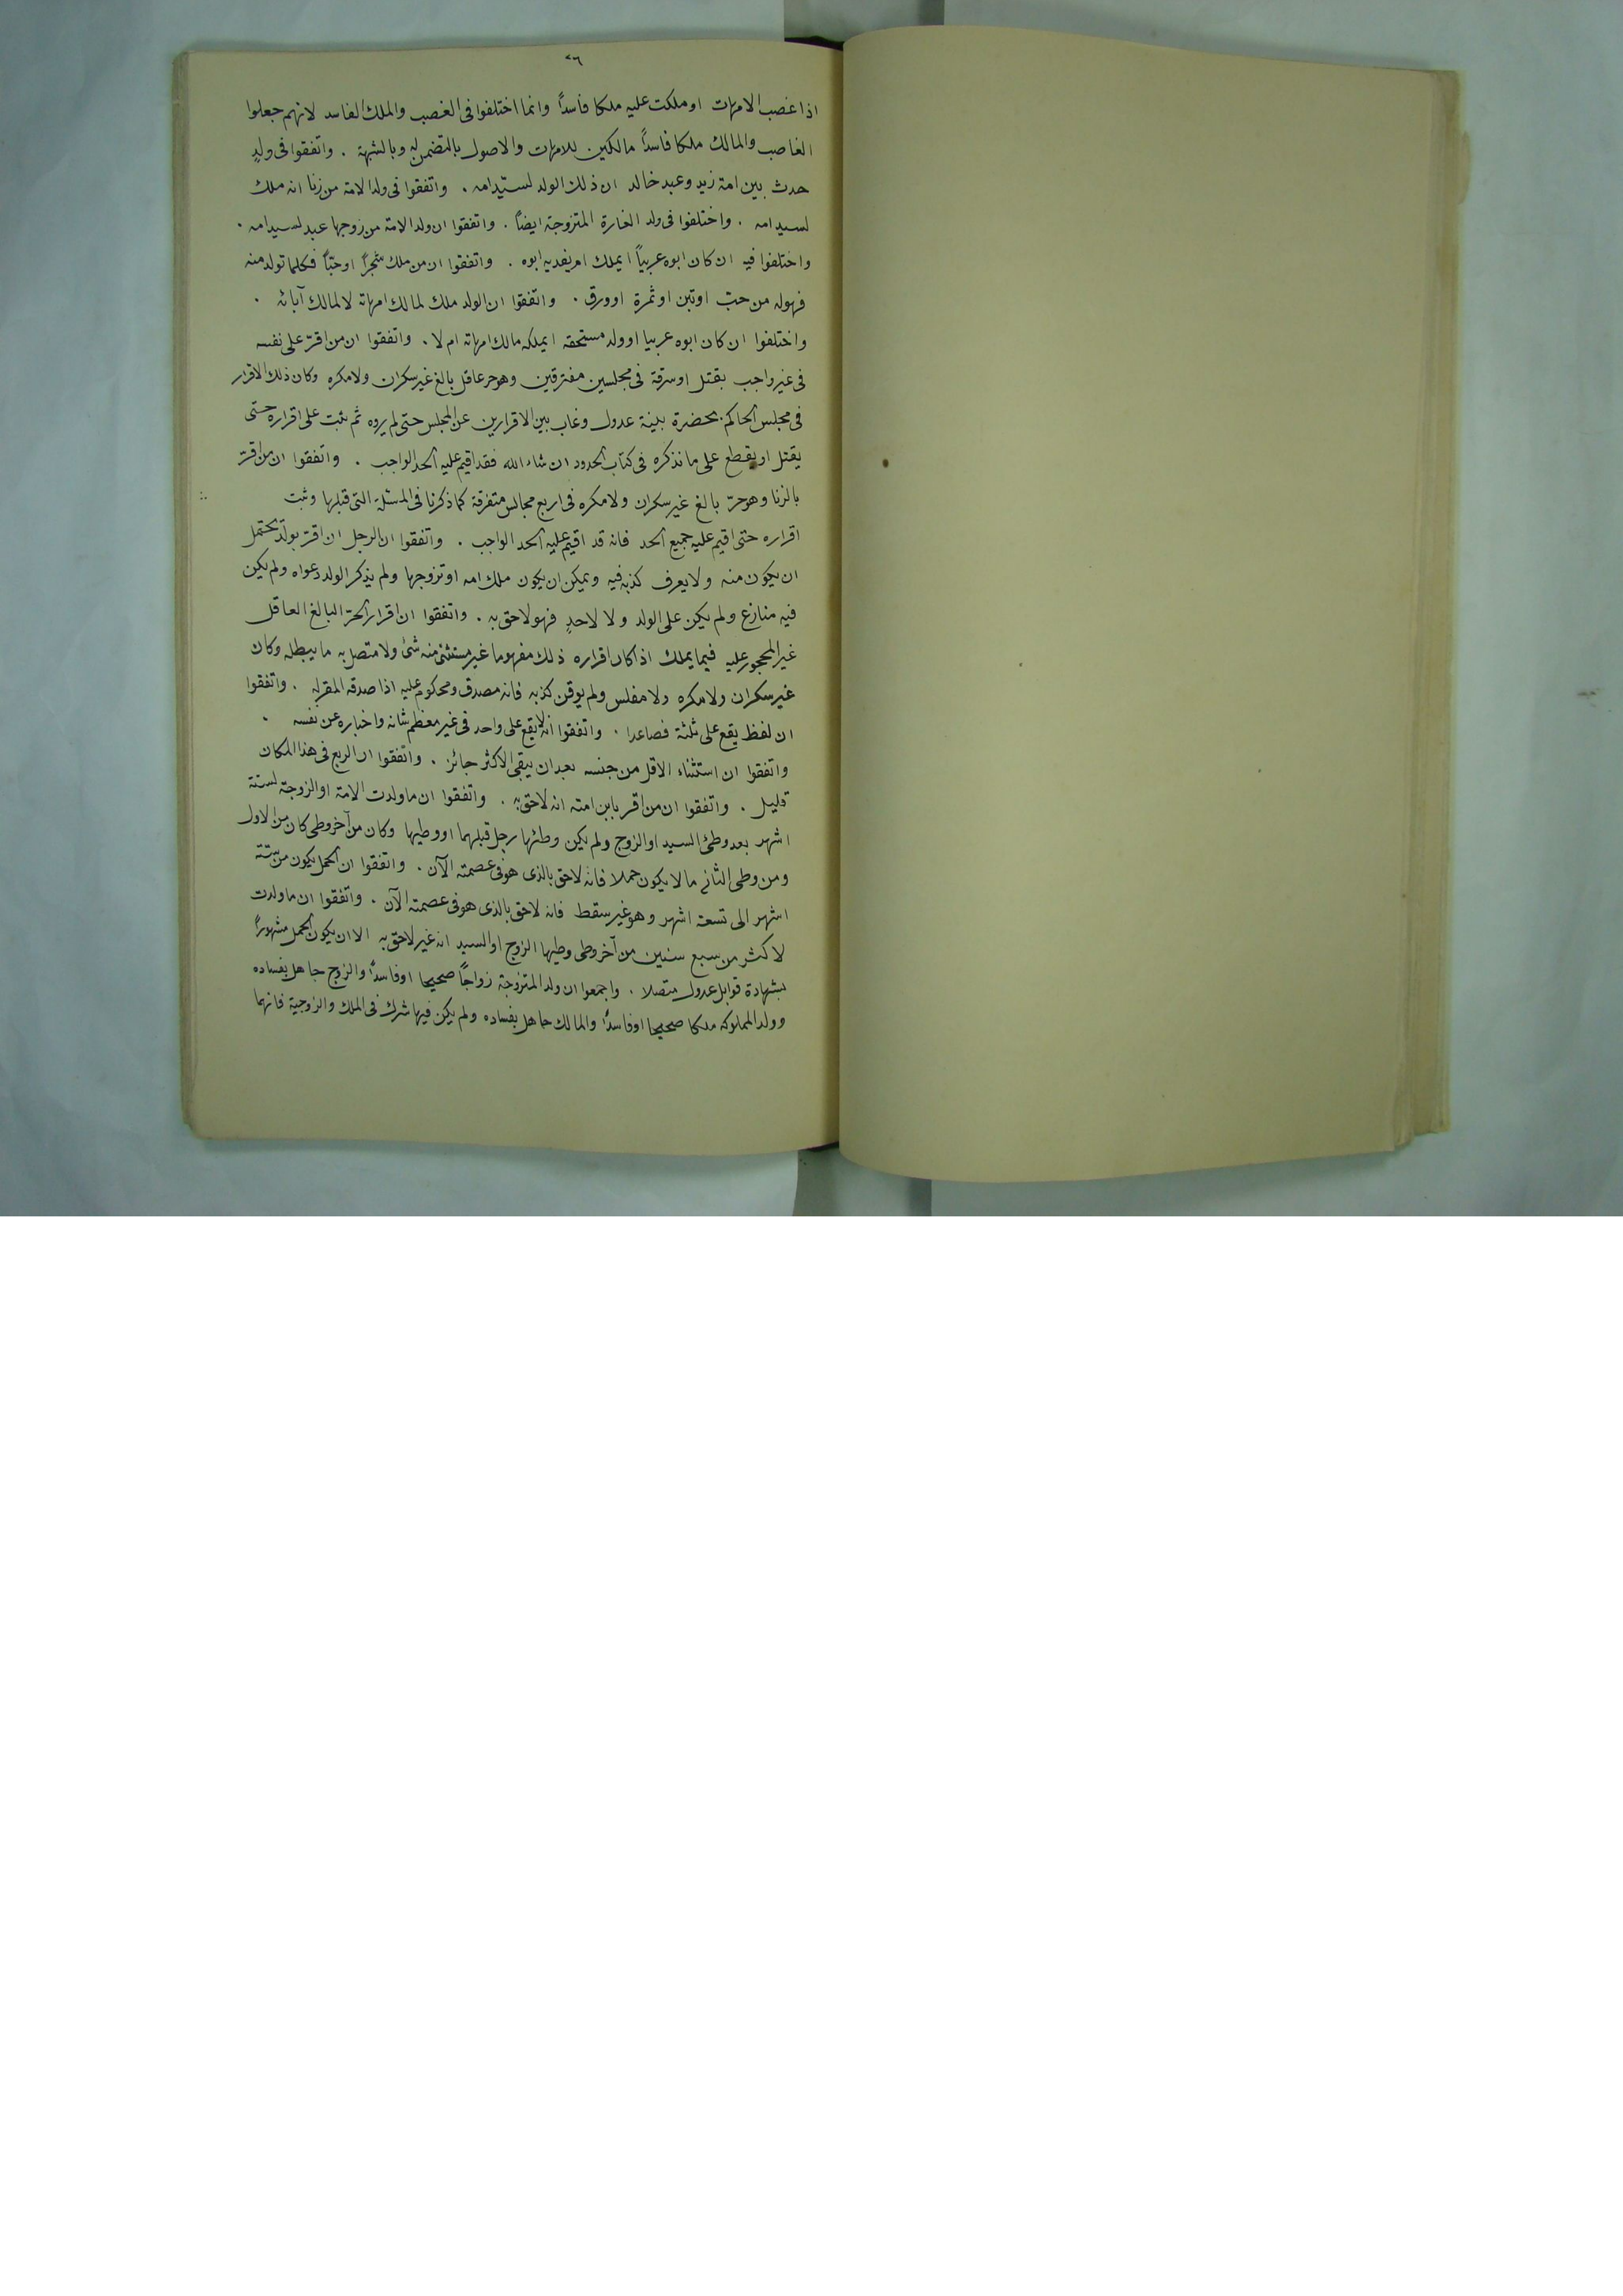 ٢٦
اذا غصب الامهات او ملكت عليه ملكا فاسداً وانما اختلفوا فى الغصب والملك الفاسد لانهم جعلوا
الغاصب والمالك ملكا فاسداً مالكين للامهات والاصول بالتضمن له وبالشبهة . واتفقوا فى ولدٍ
حدث بين امة زيد وعبد خالد ان ذلك الولد لسيد امه . واتفقوا فى ولد الامة من زنا انه ملك
لسيد امه . واختلفوا فى ولد الغارة المتزوجة ايضاً . واتفقوا ان ولد الامة من زوجها عبد لسيد امه .
واختلفوا فيه ان كان ابوه عربياً ايملك ام يفديه ابوه . واتفقوا ان من ملك شجراً او حبّاً فكلما تولد منه
فهوله من حبّ او تبن او ثمرة او ورق . واتفقوا ان الولد ملك لمالك امهاته لا لمالك آبائه .
واختلفوا ان كان ابوه عربيا او ولد مستحقة ايملكه مالك امهاته ام لا . واتفقوا ان من اقرّ على نفسه
فى غير واجب بقتل او سرقة فى مجلسين مفترقين وهو حر عاقل بالغ غير سكران ولا مكره وكان ذلك الاقرار
فى مجلس الحاكم بحضرة بينة عدول وغاب بين الاقرارين عن المجلس حتى لم يروه ثم ثبت على اقراره حتى
يقتل او يقطع على ما نذكره فى كتاب الحدود ان شاء الله فقد اقيم عليه الحد الواجب . واتفقوا ان من اقرّ
بالزنا وهو حرّ بالغ غير سكران ولا مكره فى اربع مجالس متفرقة كما ذكرنا فى المسئلة التى قبلها وثبت
اقراره حتى اقيم عليه جميع الحد فانه قد اقيم عليه الحد الواجب . واتفقوا ان الرجل ان اقرّ بولد يحتمل
ان يكون منه ولا يعرف كذبه فيه ويمكن ان يكون ملك امه او تزوجها ولم ينكر الولد دعواه ولم يكن
فيه منازع ولم يكن على الولد ولا لاحدٍ فهو لاحق به . واتفقوا ان اقرار الحرّ البالغ العاقل
غير المحجور عليه فيما يملك اذا كان اقراره ذلك مفهوما غير مستثنى منه شئ ولا متصل به ما يبطله وكان
غير سكران ولا مكره ولا مفلس ولم يوقن كذبه فانه مصدق ومحكوم عليه اذا صدقه المقر له . واتفقوا
ان لفظ يقع على ثلثة فصاعدا . واتفقوا انه لا يقع على واحد فى غير معظم شانه واخباره عن نفسه .
واتفقوا ان استثناء الاقل من جنسه بعد ان يبقى الاكثر جائز . واتفقوا ان الربع فى هذا المكان
قليل . واتفقوا ان من اقر بابن امته انه لاحق به . واتفقوا ان ما ولدت الامة او الزوجة لستة
اشهر بعد وطئ السيد او الزوج ولم يكن وطئها رجل قبلهما او وطيها وكان من آخر وطى كان من الاول
ومن وطى الثانى ما لا يكون حملا فانه لاحق بالذى هو فى عصمته الآن . واتفقوا ان الحمل يكون من ستة
اشهر الى تسعة اشهر وهو غير سقط فانه لاحق بالذى هو فى عصمته الآن . واتفقوا ان ما ولدت
لاكثر من سبع سنين من آخر وطى وطيها الزوج او السيد انه غير لاحق به الا ان يكون الحمل مشهوراً
بشهادة قوابل عدول متصلا . واجمعوا ان ولد المتزوجة زواجاً صحيحا او فاسداً والزوج جاهل بفساده
وولد المملوكة ملكا صحيحا او فاسداً والمالك جاهل بفساده ولم يكن فيها شرك فى الملك والزوجية فانهما